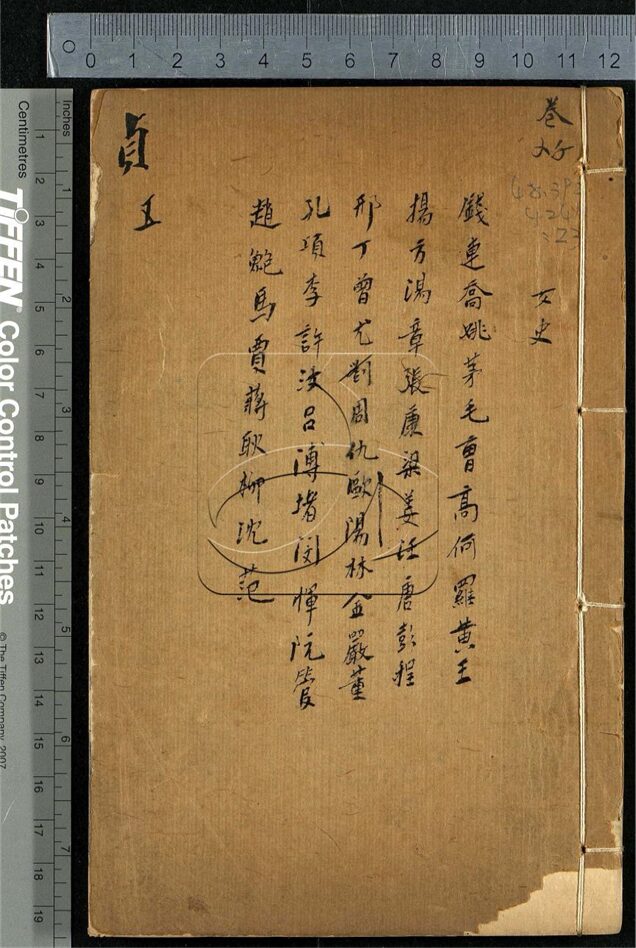 卷
女史
錢連喬姚茅毛曹高何羅黃王
揚方湯章張康梁姜任唐彭程
邢丁曾尤劉周仇歐湯林金嚴董
孔項李許沈呂溥堵閔惲阮管
趙鮑馬賈蔣耿柳沈范
貞
五
0 1 2 3 4 5 6 7 8 9 10 11 12
Inches
1 2 3 4 5 6 7
Centimetres
1 2 3 4 5 6 7 8 9 10 11 12 13 14 15 16 17 18 19
TIFFEN Color Control Patches
© The Tiffen Company, 2007